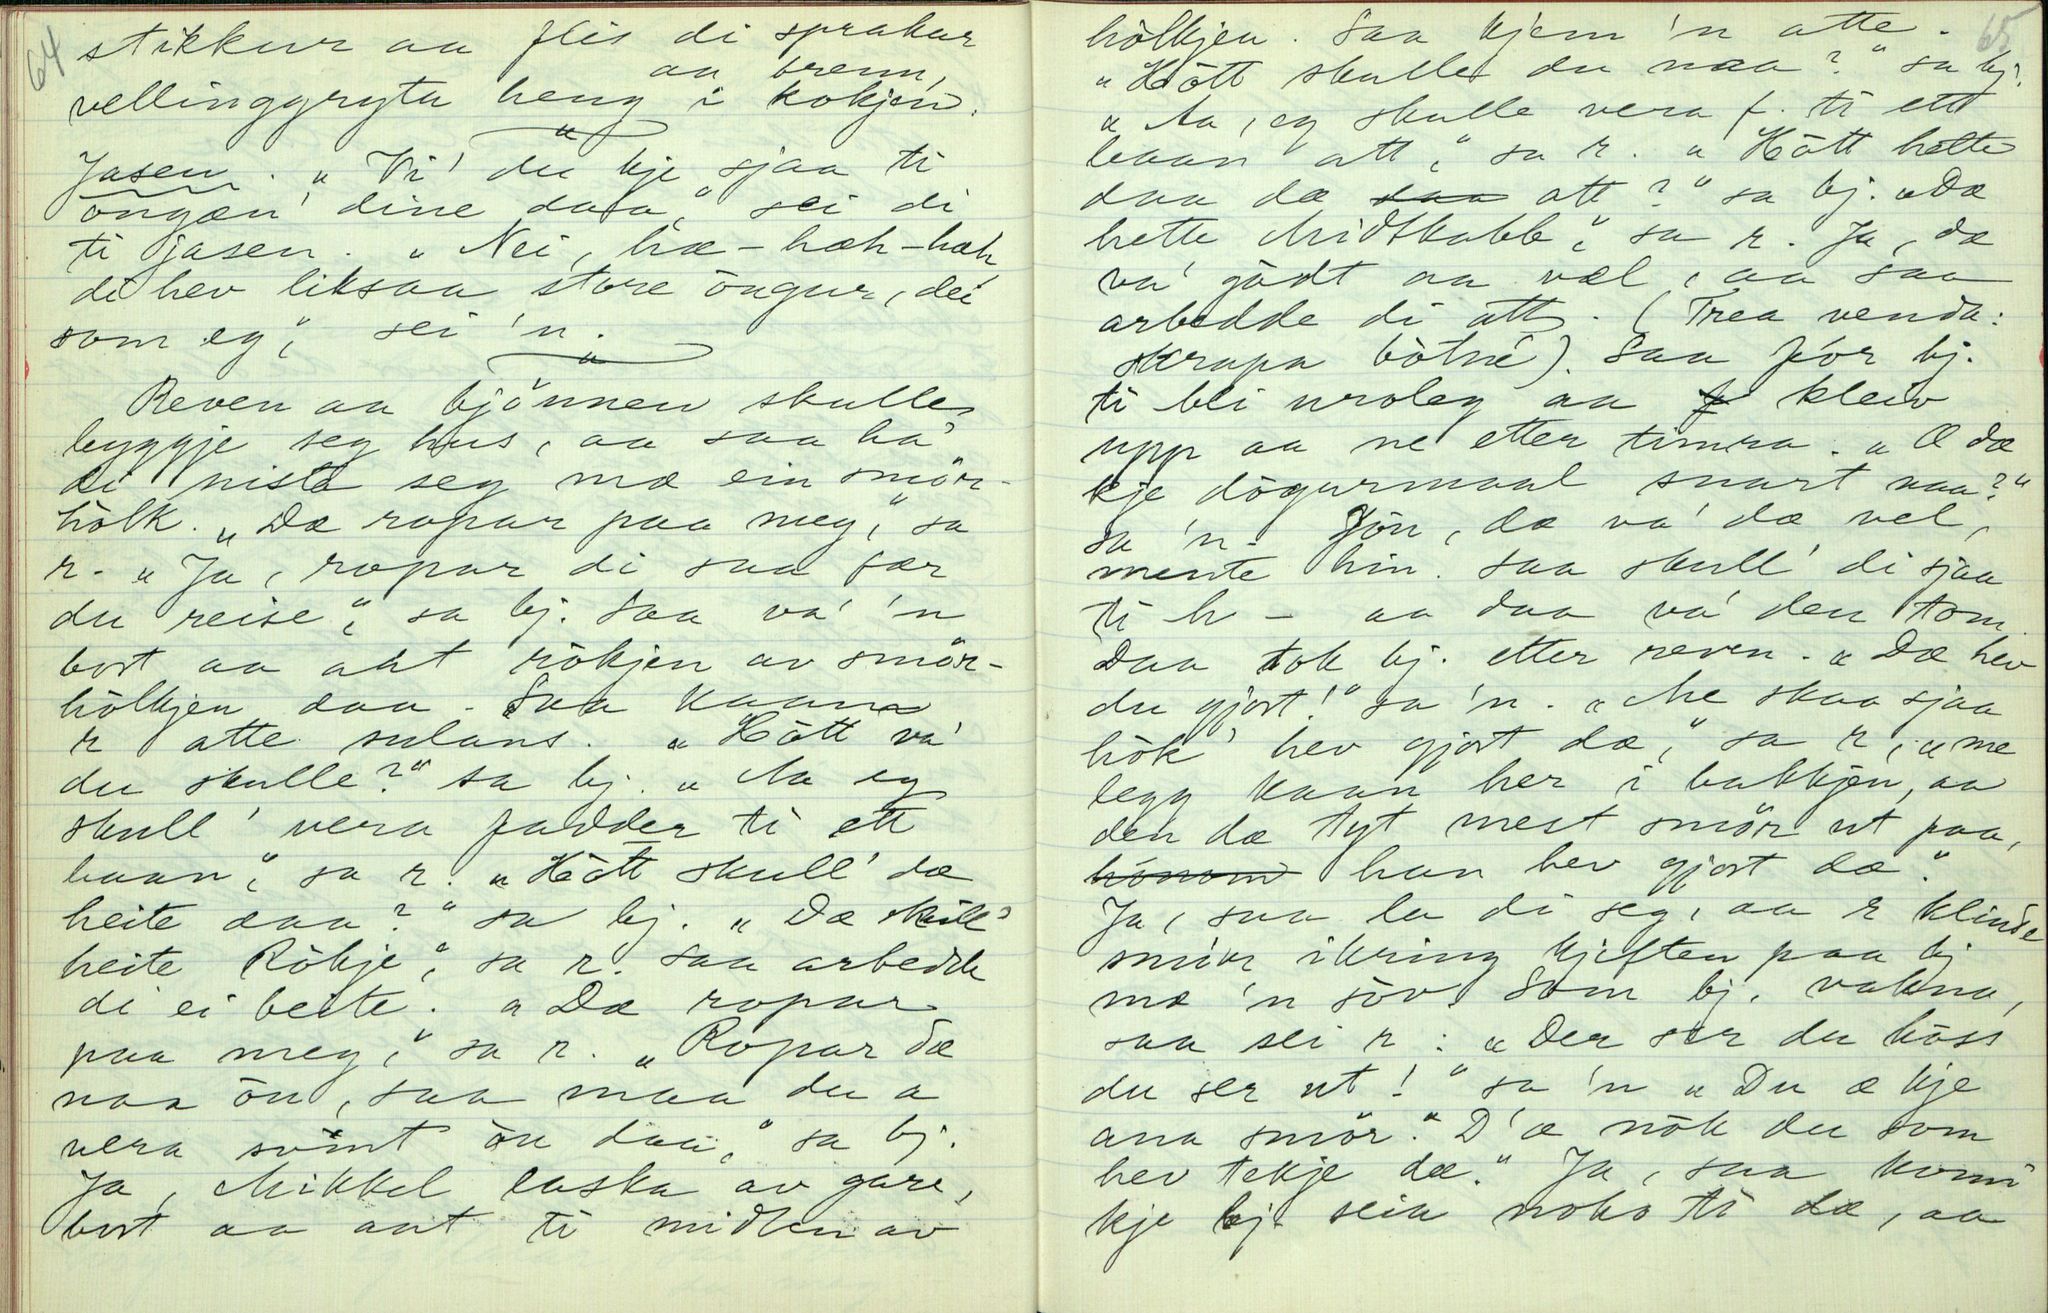 64
stikkur aa flis di sprakar
aa brenn,
vellinggryta heng i kokjen.
"
Jasen. „Vi' du kje sjaa ti
öngæn' dine daa," sei di
ti jasen. „Nei, hæ-hæh-hæh
di hev liksaa store öngur, dei
som eg," sei 'n.
"
Reven aa bjönnen skulle
byggje seg hus, aa saa ha'
di nista seg mæ ein smör-
hölk. „Dæ ropar paa meg," sa
r. „Ja, ropar di saa fær
du reise," sa bj. Saa va' 'n
bort aa aat rökjen av smör-
hölkjen daa. Saa kaam
r atte sulans. „Hött va'
du skulle?" sa bj. „Aa eg
skull' vera fadder ti ett
baan," sa r. „Hött skull' dæ
heite daa?" sa bj. „Dæ skull'
heite Rökje," sa r. Saa arbedde
di ei beite. „Dæ ropar
paa meg," sa r. „Ropar dæ
naa ön, saa maa du a
vera svint ön daa," sa bj.
Ja, Mikkel laska av gare,
bort aa aat ti midten av
65
hölkjen. Saa kjem 'n atte.
„Hött skulle du naa?" sa bj.
„Aa, eg skulle vera f. ti ett
baan att," sa r. „Hött hette
daa dæ saa att?" sa bj. „Dæ
hette Midtskabb," sa r. Ja, dæ
va' gödt aa væl, aa saa
arbedde di att. (Trea venda:
skrapa bötné). Saa för bj.
ti bli uroleg aa f kleiv
upp aa ne etter timra. „Æ dæ
kje dögurmaal snart naa?"
sa 'n. Jön, dæ va' dæ vel,
mente hin. Saa skull' di sjaa
ti h – aa daa va' den tom.
Daa tok bj. etter reven. „Dæ hev
du gjort!" sa 'n. „Me skaa sjaa
hök' hev gjort dæ," sa r, „me
legg kaan her i bakkjén, aa
den dæ tyt mest smör ut paa,
hönom han hev gjort dæ."
Ja, saa la di seg, aa r klinde
smör ikring kjeften paa bj
mæ 'n söv. Som bj. vakna,
saa sei r: „Der ser du höss
du ser ut!" sa 'n „Du æ kje
ana smör." D'æ nök du som
hev tekje dæ." Ja, saa kunn'
kje bj. seia noko ti dæ, aa